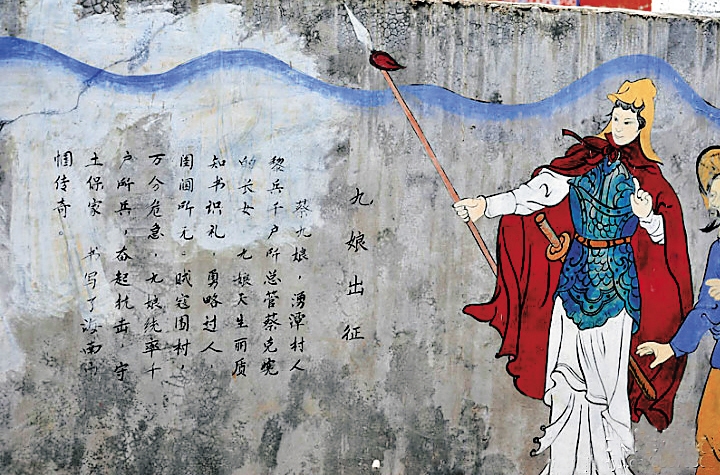 九娘出征
蔡九娘，湧潭村人
黎兵千户所总管蔡克
的长女 九娘天生丽质
知书识礼，勇略过人，
闺阃所无。贼寇围村，
万分危急，九娘统率千
户所兵，奋起抗击，守
土保家 书写了海南巾
帼传奇。